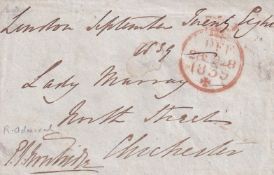 London September Twenty Eight
1839
Lady Murray
North Street
Chichester
R. Admiral
SP 28
1839